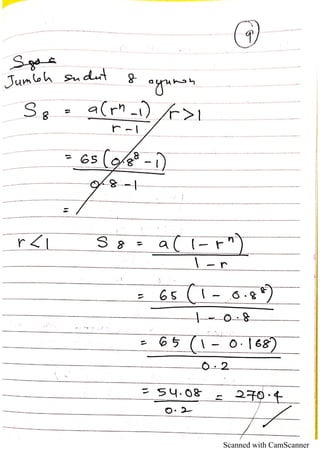 9
Jumlah sudut 8 ayunan
S8 = a(rⁿ-1) r>1
r-1
= 65(0.8⁸-1)
0.8-1
=
r<1 S8 = a(1-rⁿ)
1-r
= 65(1-0.8⁸)
1-0.8
= 65(1-0.168)
0.2
= 54.08 = 270.4
0.2
Scanned with CamScanner